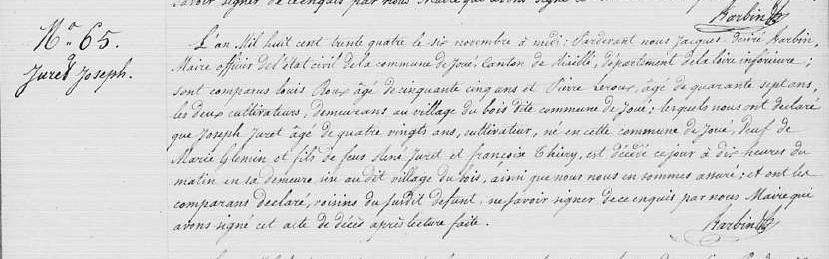 savoir signer de ce enquis par nous Maire qui avons signé
Harbin
No 65.
Juret Joseph.
L'an Mil huit cent trente quatre le six novembre à midi; Pardevant nous Jacques Désiré Harbin,
Maire officier de l'état civil de la commune de Joué, Canton de Riaillé, département de la loire inférieure;
sont comparus Louis Roux âgé de cinquante cinq ans et Pierre Leroux, âgé de quarante sept ans,
les deux cultivateurs, demeurans au village du bois dite commune de Joué; lesquels nous ont déclaré
que Joseph Juret âgé de quatre vingts ans, cultivateur, né en cette commune de Joué, Veuf de
Marie et fils de feus René Juret et françoise Thiery, est décédé ce jour à dix heures du
matin en sa demeure sise au dit village du bois, ainsi que nous nous en sommes assuré; et ont les
comparans déclaré, voisins du susdit défunt, ne savoir signer de ce enquis par nous Maire qui
avons signé cet acte de décès après lecture faite.
Harbin